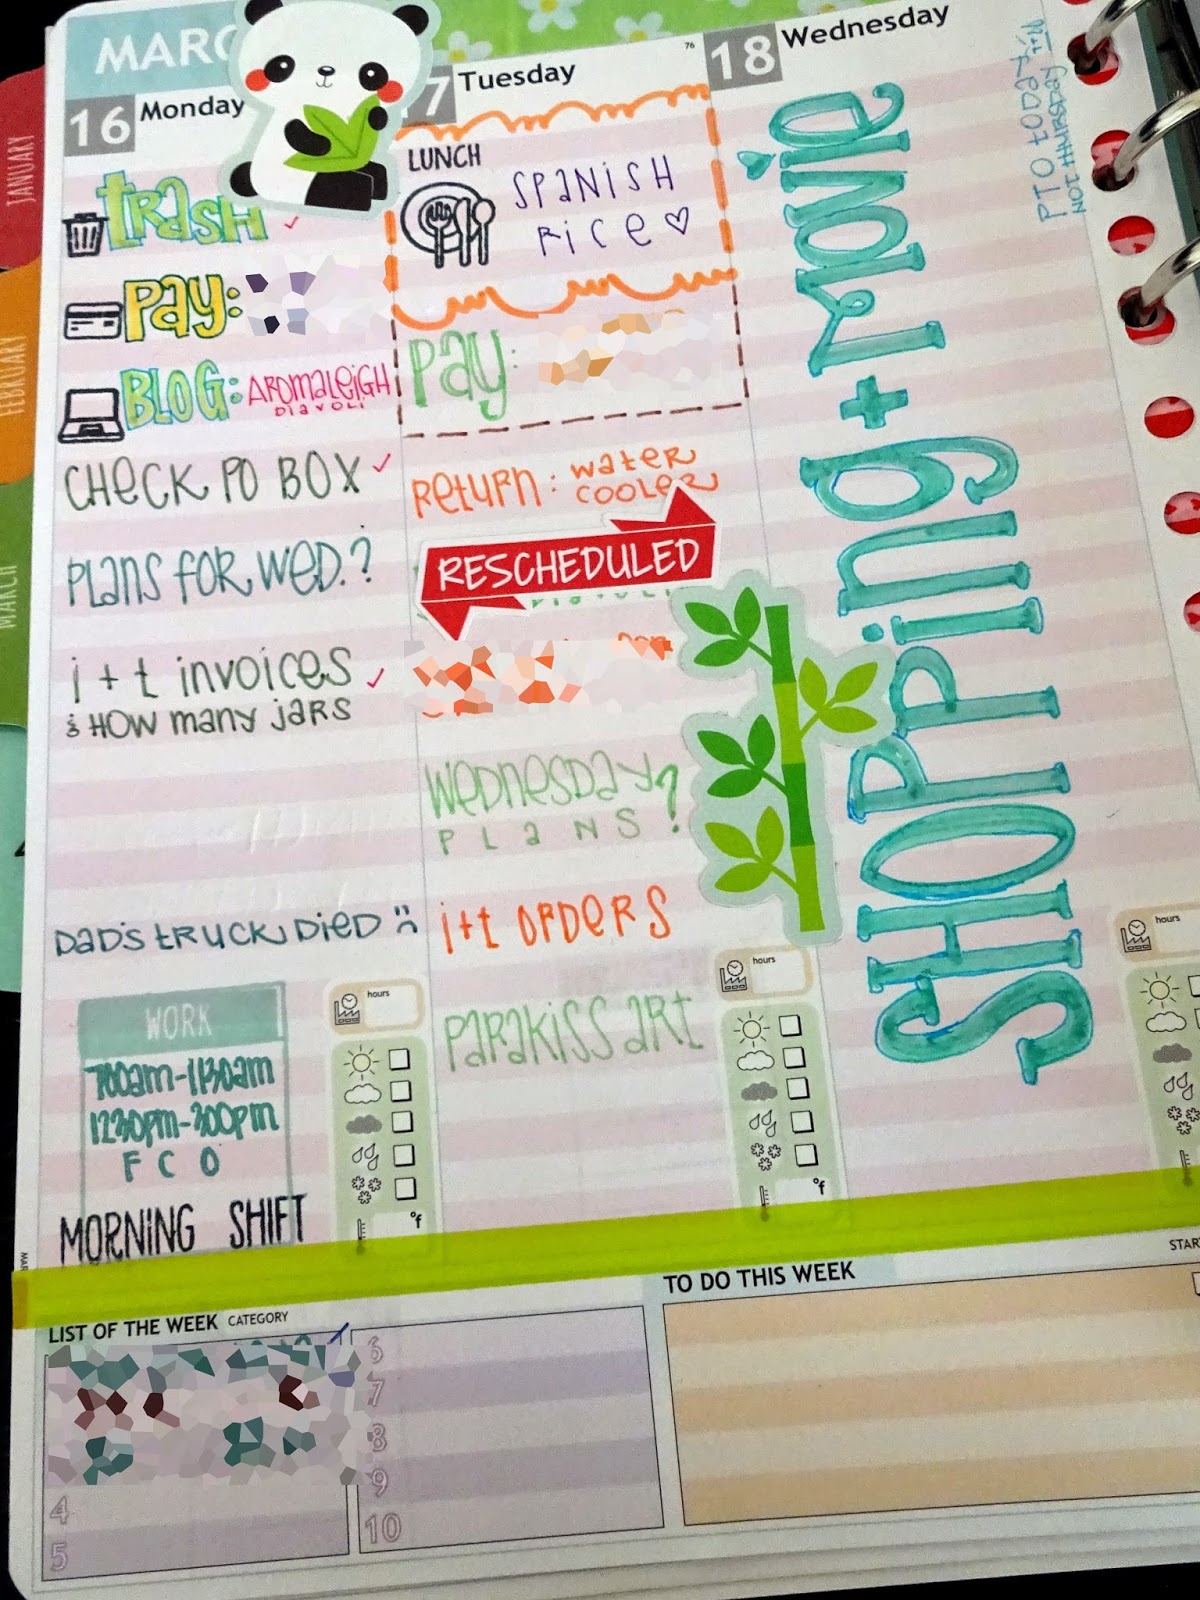 MARC
16 Monday
TRASH
PAY:
BLOG: AROMALEIGH
DIAVOLI
CHECK PO BOX
PLANS FOR WED.?
i + t invoices
& HOW many jars
DAD'S TRUCK DIED
WORK
700am-1130am
1230pm-300pm
F C O
MORNING SHIFT
hours
°f
7 Tuesday
76
LUNCH
SPANISH
RICE
PAY:
RETURN: WATER
COOLER
RESCHEDULED
WEDNESDAY?
PLANS
i+t ORDERS
PARAKISS ART
hours
°f
18 Wednesday
SHOPPING + MOVIE
PTO TODAY
NOT THURSDAY
hours
JANUARY
FEBRUARY
MARCH
LIST OF THE WEEK CATEGORY
4
5
6
7
8
9
10
TO DO THIS WEEK
STAR